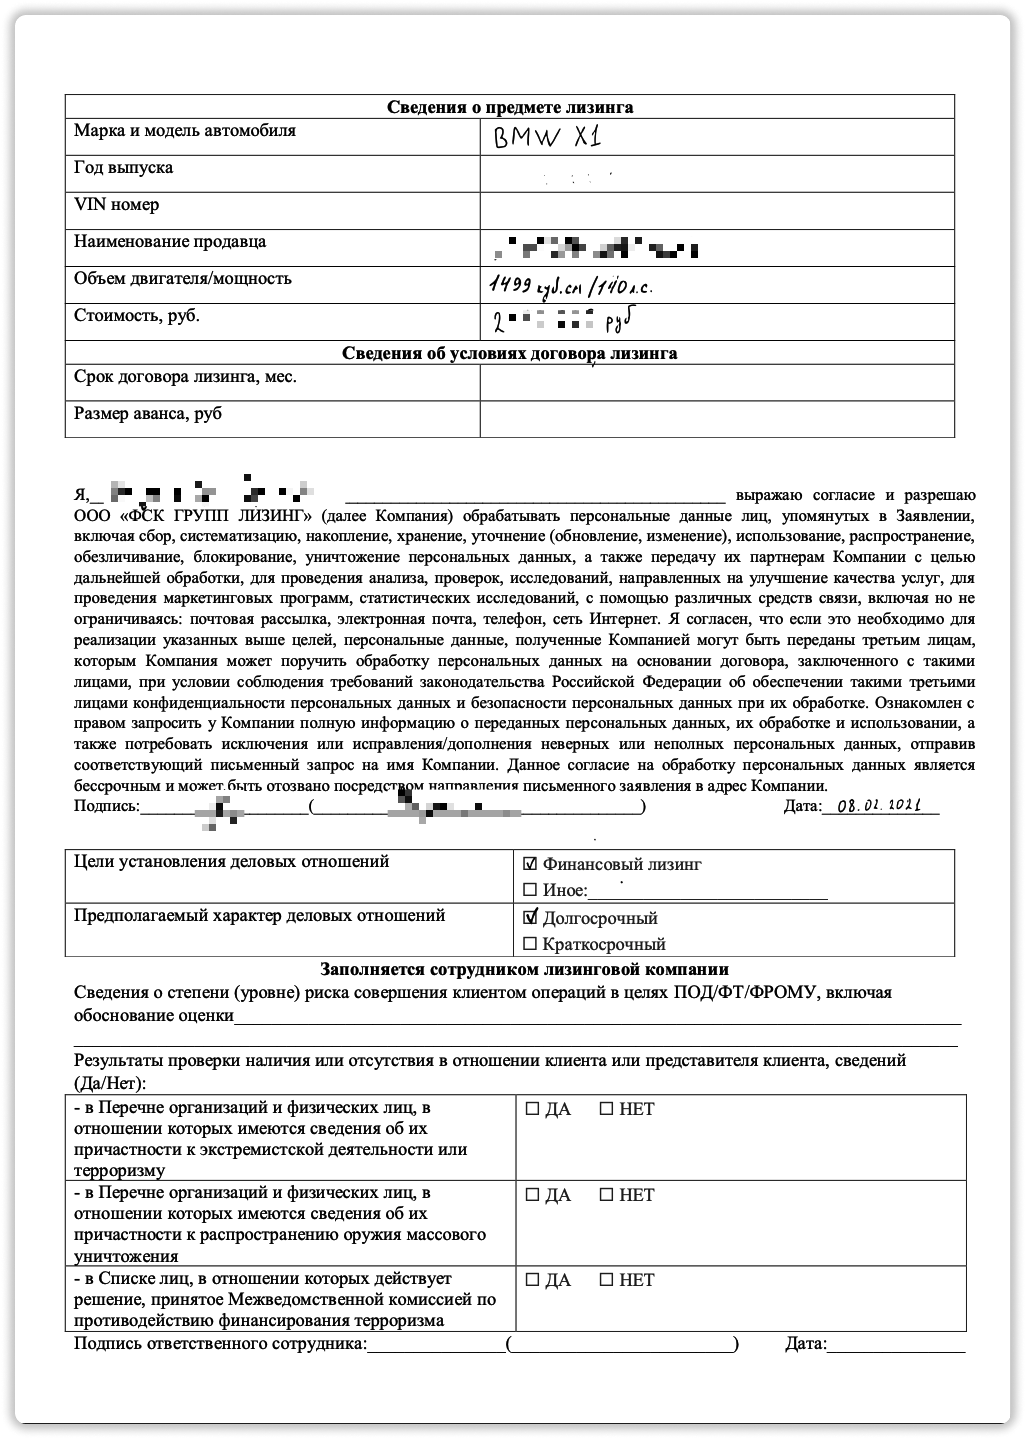 Сведения о предмете лизинга
Марка и модель автомобиля BMW X1
Год выпуска
VIN номер
Наименование продавца
Объем двигателя/мощность 1499 куб.см /140 л.с.
Стоимость, руб. 2 руб
Сведения об условиях договора лизинга
Срок договора лизинга, мес.
Размер аванса, руб
Я,__ ____ выражаю согласие и разрешаю
ООО «ФСК ГРУПП ЛИЗИНГ» (далее Компания) обрабатывать персональные данные лиц, упомянутых в Заявлении,
включая сбор, систематизацию, накопление, хранение, уточнение (обновление, изменение), использование, распространение,
обезличивание, блокирование, уничтожение персональных данных, а также передачу их партнерам Компании с целью
дальнейшей обработки, для проведения анализа, проверок, исследований, направленных на улучшение качества услуг, для
проведения маркетинговых программ, статистических исследований, с помощью различных средств связи, включая но не
ограничиваясь: почтовая рассылка, электронная почта, телефон, сеть Интернет. Я согласен, что если это необходимо для
реализации указанных выше целей, персональные данные, полученные Компанией могут быть переданы третьим лицам,
которым Компания может поручить обработку персональных данных на основании договора, заключенного с такими
лицами, при условии соблюдения требований законодательства Российской Федерации об обеспечении такими третьими
лицами конфиденциальности персональных данных и безопасности персональных данных при их обработке. Ознакомлен с
правом запросить у Компании полную информацию о переданных персональных данных, их обработке и использовании, а
также потребовать исключения или исправления/дополнения неверных или неполных персональных данных, отправив
соответствующий письменный запрос на имя Компании. Данное согласие на обработку персональных данных является
бессрочным и может быть отозвано посредством направления письменного заявления в адрес Компании.
Подпись:____(____) Дата: 08.02.2021
Цели установления деловых отношений ☑ Финансовый лизинг
☐ Иное:____
Предполагаемый характер деловых отношений ☑ Долгосрочный
☐ Краткосрочный
Заполняется сотрудником лизинговой компании
Сведения о степени (уровне) риска совершения клиентом операций в целях ПОД/ФТ/ФРОМУ, включая
обоснование оценки____
Результаты проверки наличия или отсутствия в отношении клиента или представителя клиента, сведений
(Да/Нет):
- в Перечне организаций и физических лиц, в ☐ ДА ☐ НЕТ
отношении которых имеются сведения об их
причастности к экстремистской деятельности или
терроризму
- в Перечне организаций и физических лиц, в ☐ ДА ☐ НЕТ
отношении которых имеются сведения об их
причастности к распространению оружия массового
уничтожения
- в Списке лиц, в отношении которых действует ☐ ДА ☐ НЕТ
решение, принятое Межведомственной комиссией по
противодействию финансирования терроризма
Подпись ответственного сотрудника:____(____) Дата:____